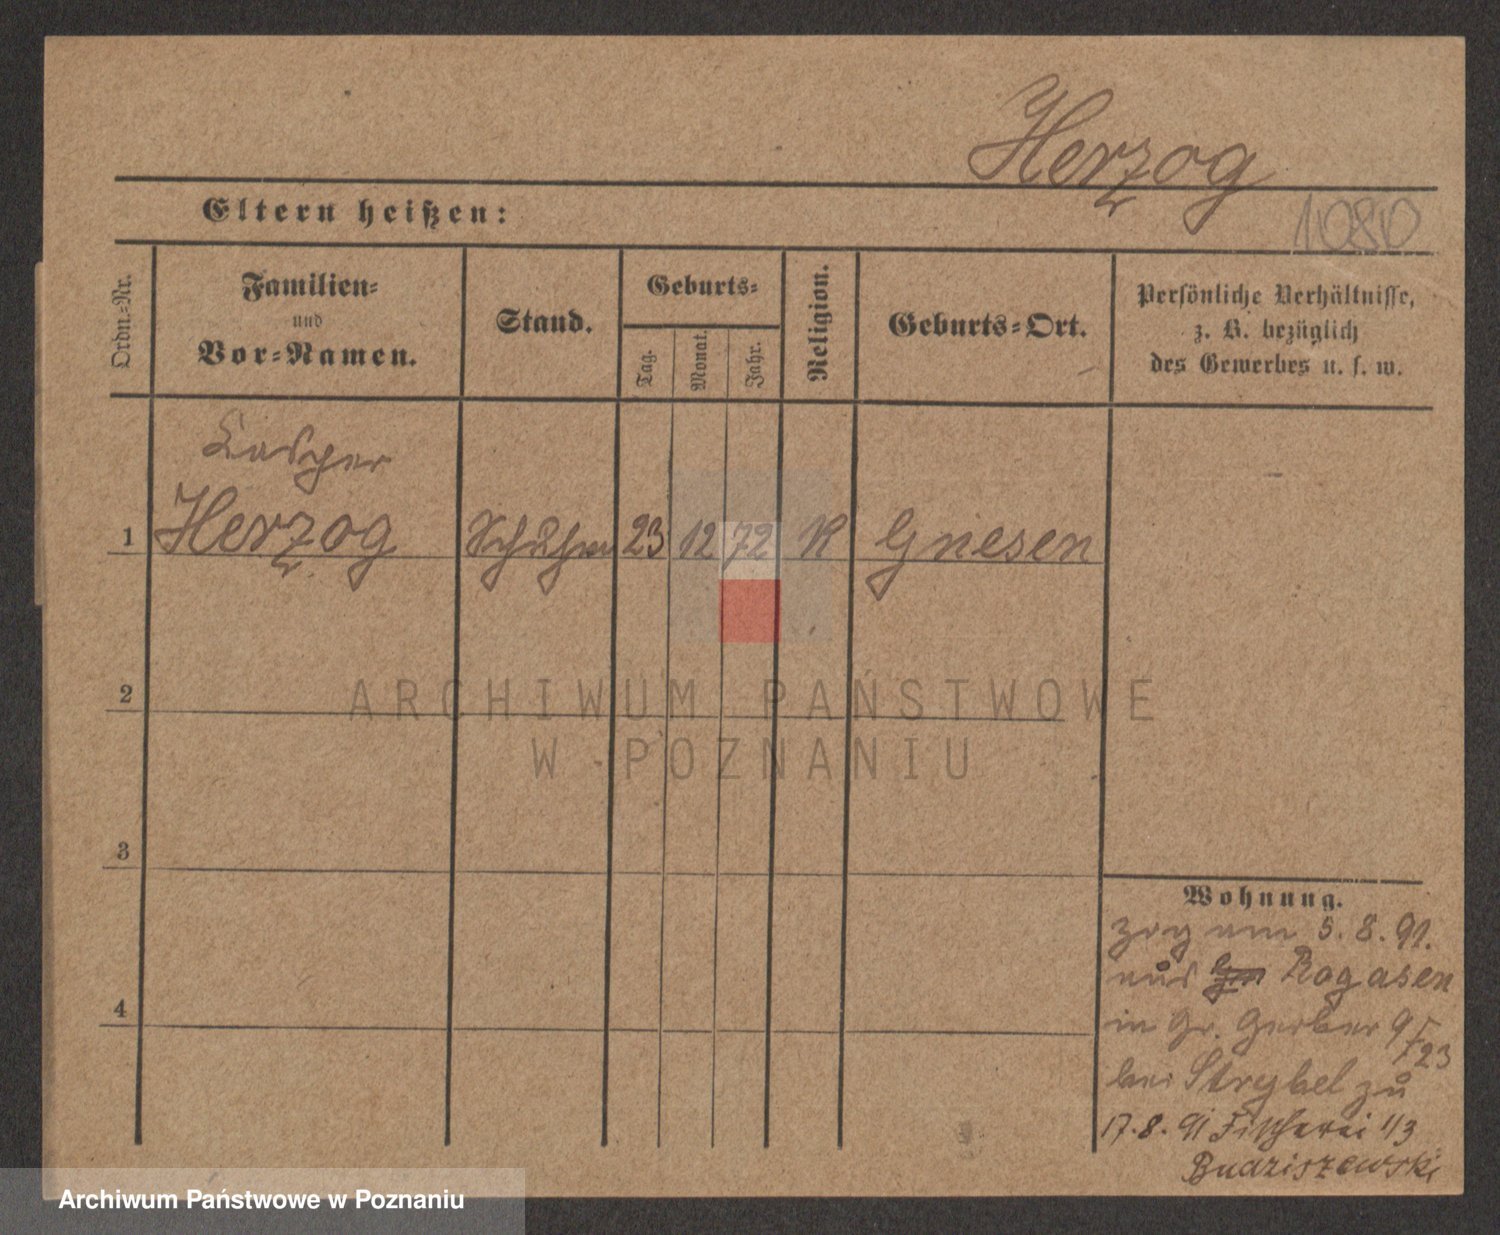 Herzog
1080
Eltern heißen:
Ordn.-Nr.
Familien-
und
Vor-Namen.
Stand.
Geburts-
Tag.
Monat.
Jahr.
Religion.
Geburts-Ort.
Persönliche Verhältnisse,
z. B. bezüglich
des Gewerbes u. s. w.
Casper
1 Herzog Schuhm 23 12 72 K Gnesen
2
3
4
Wohnung.
zog am 5.8.91.
aus Rogasen
in Gr. Gerber 9
F 23
bei Strybel zu
17.8.91 Fischerei 1/3
Budziszewski
ARCHIWUM PAŃSTWOWE
W POZNANIU
Archiwum Państwowe w Poznaniu